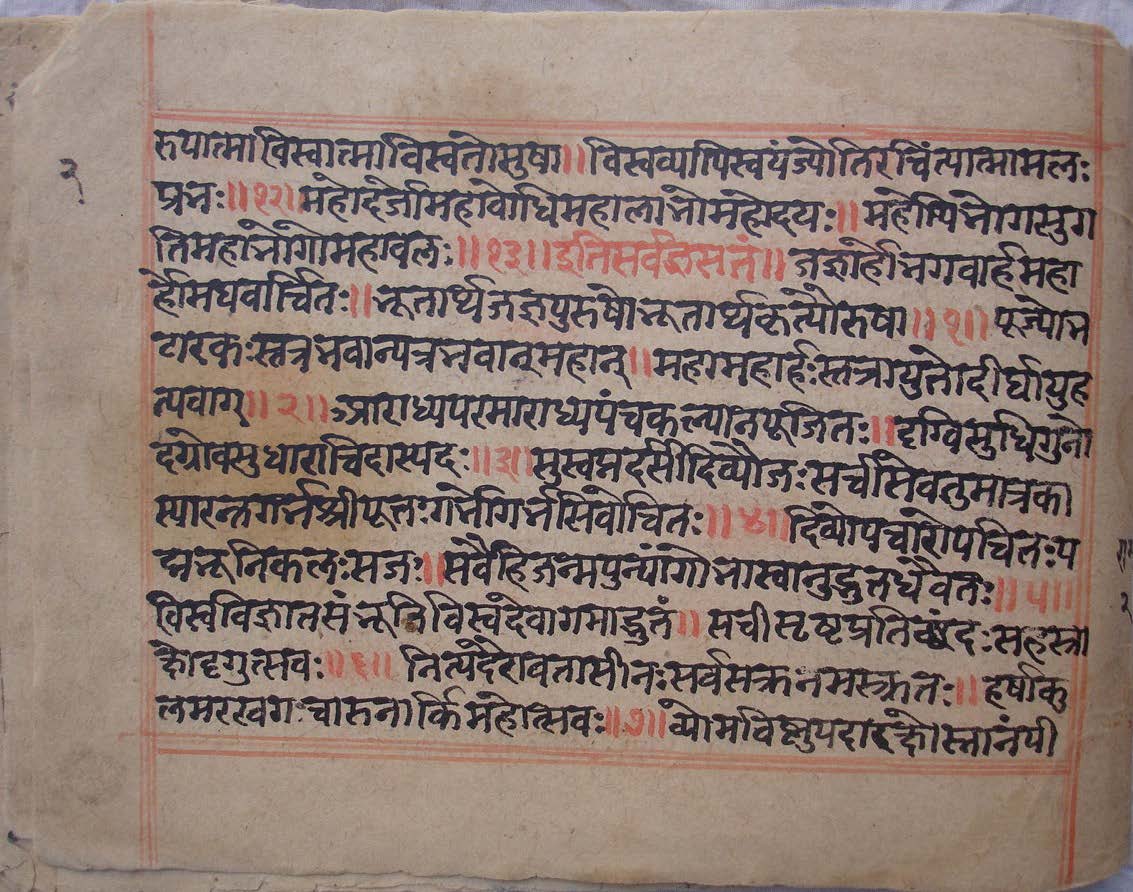 रुपात्मा विस्वात्मा विस्वतोमुषा॥ विस्वव्यापि स्वयंज्योतिरचिंत्यात्मामल:
प्रभ:॥१२॥ महोदर्जा महाबोधि महालाभो महोदय:॥ महोपिभोगसुग
तिमहाभोगो महाबल:॥१३॥ इति सर्वज्ञसतं॥ जज्ञार्हो भगवार्ह महा
र्हो मघवार्चित:॥ भूतार्थ्यजज्ञपुरुषो भूतार्थ्यकृत्यौरुषा॥१॥ पूज्यो भ
टारक: स्तत्रभवान्यत्रभवान्महान्॥ महामहार्ह: स्तत्रायुतो दीर्घायुह
त्यवाग्॥२॥ आराध्य परमाराध्य पंचकल्यानपूजित:॥ दृग्विसुधिगुनो
दग्रो वसुधाराचिदास्पद:॥३॥ सुस्वप्नदर्सी दिव्यौज: सचीसेवतुमात्रका
स्यारत्नगर्भ श्रीपूतगर्भो गर्भसिवोचित:॥४॥ दिव्योपचारोपचित: प
द्मभूनिकल: सज:॥ सर्वैहिजन्मपुन्यांगो भास्वानुद्भुतर्धैवत:॥५॥
विस्वविज्ञातसंभूति विस्वदेवागमाद्भुतं॥ सचीसृष्टप्रतिछंद: सहस्त्रा
क्षोदृगुत्सव:॥६॥ नित्यदैरावतासीन: सर्वसक्रनमस्क्रत:॥ हर्षाकु
लमरखग चारुनार्किमहोत्सव:॥७॥ व्योम विष्णुपदारक्षौ स्नानंपी
२